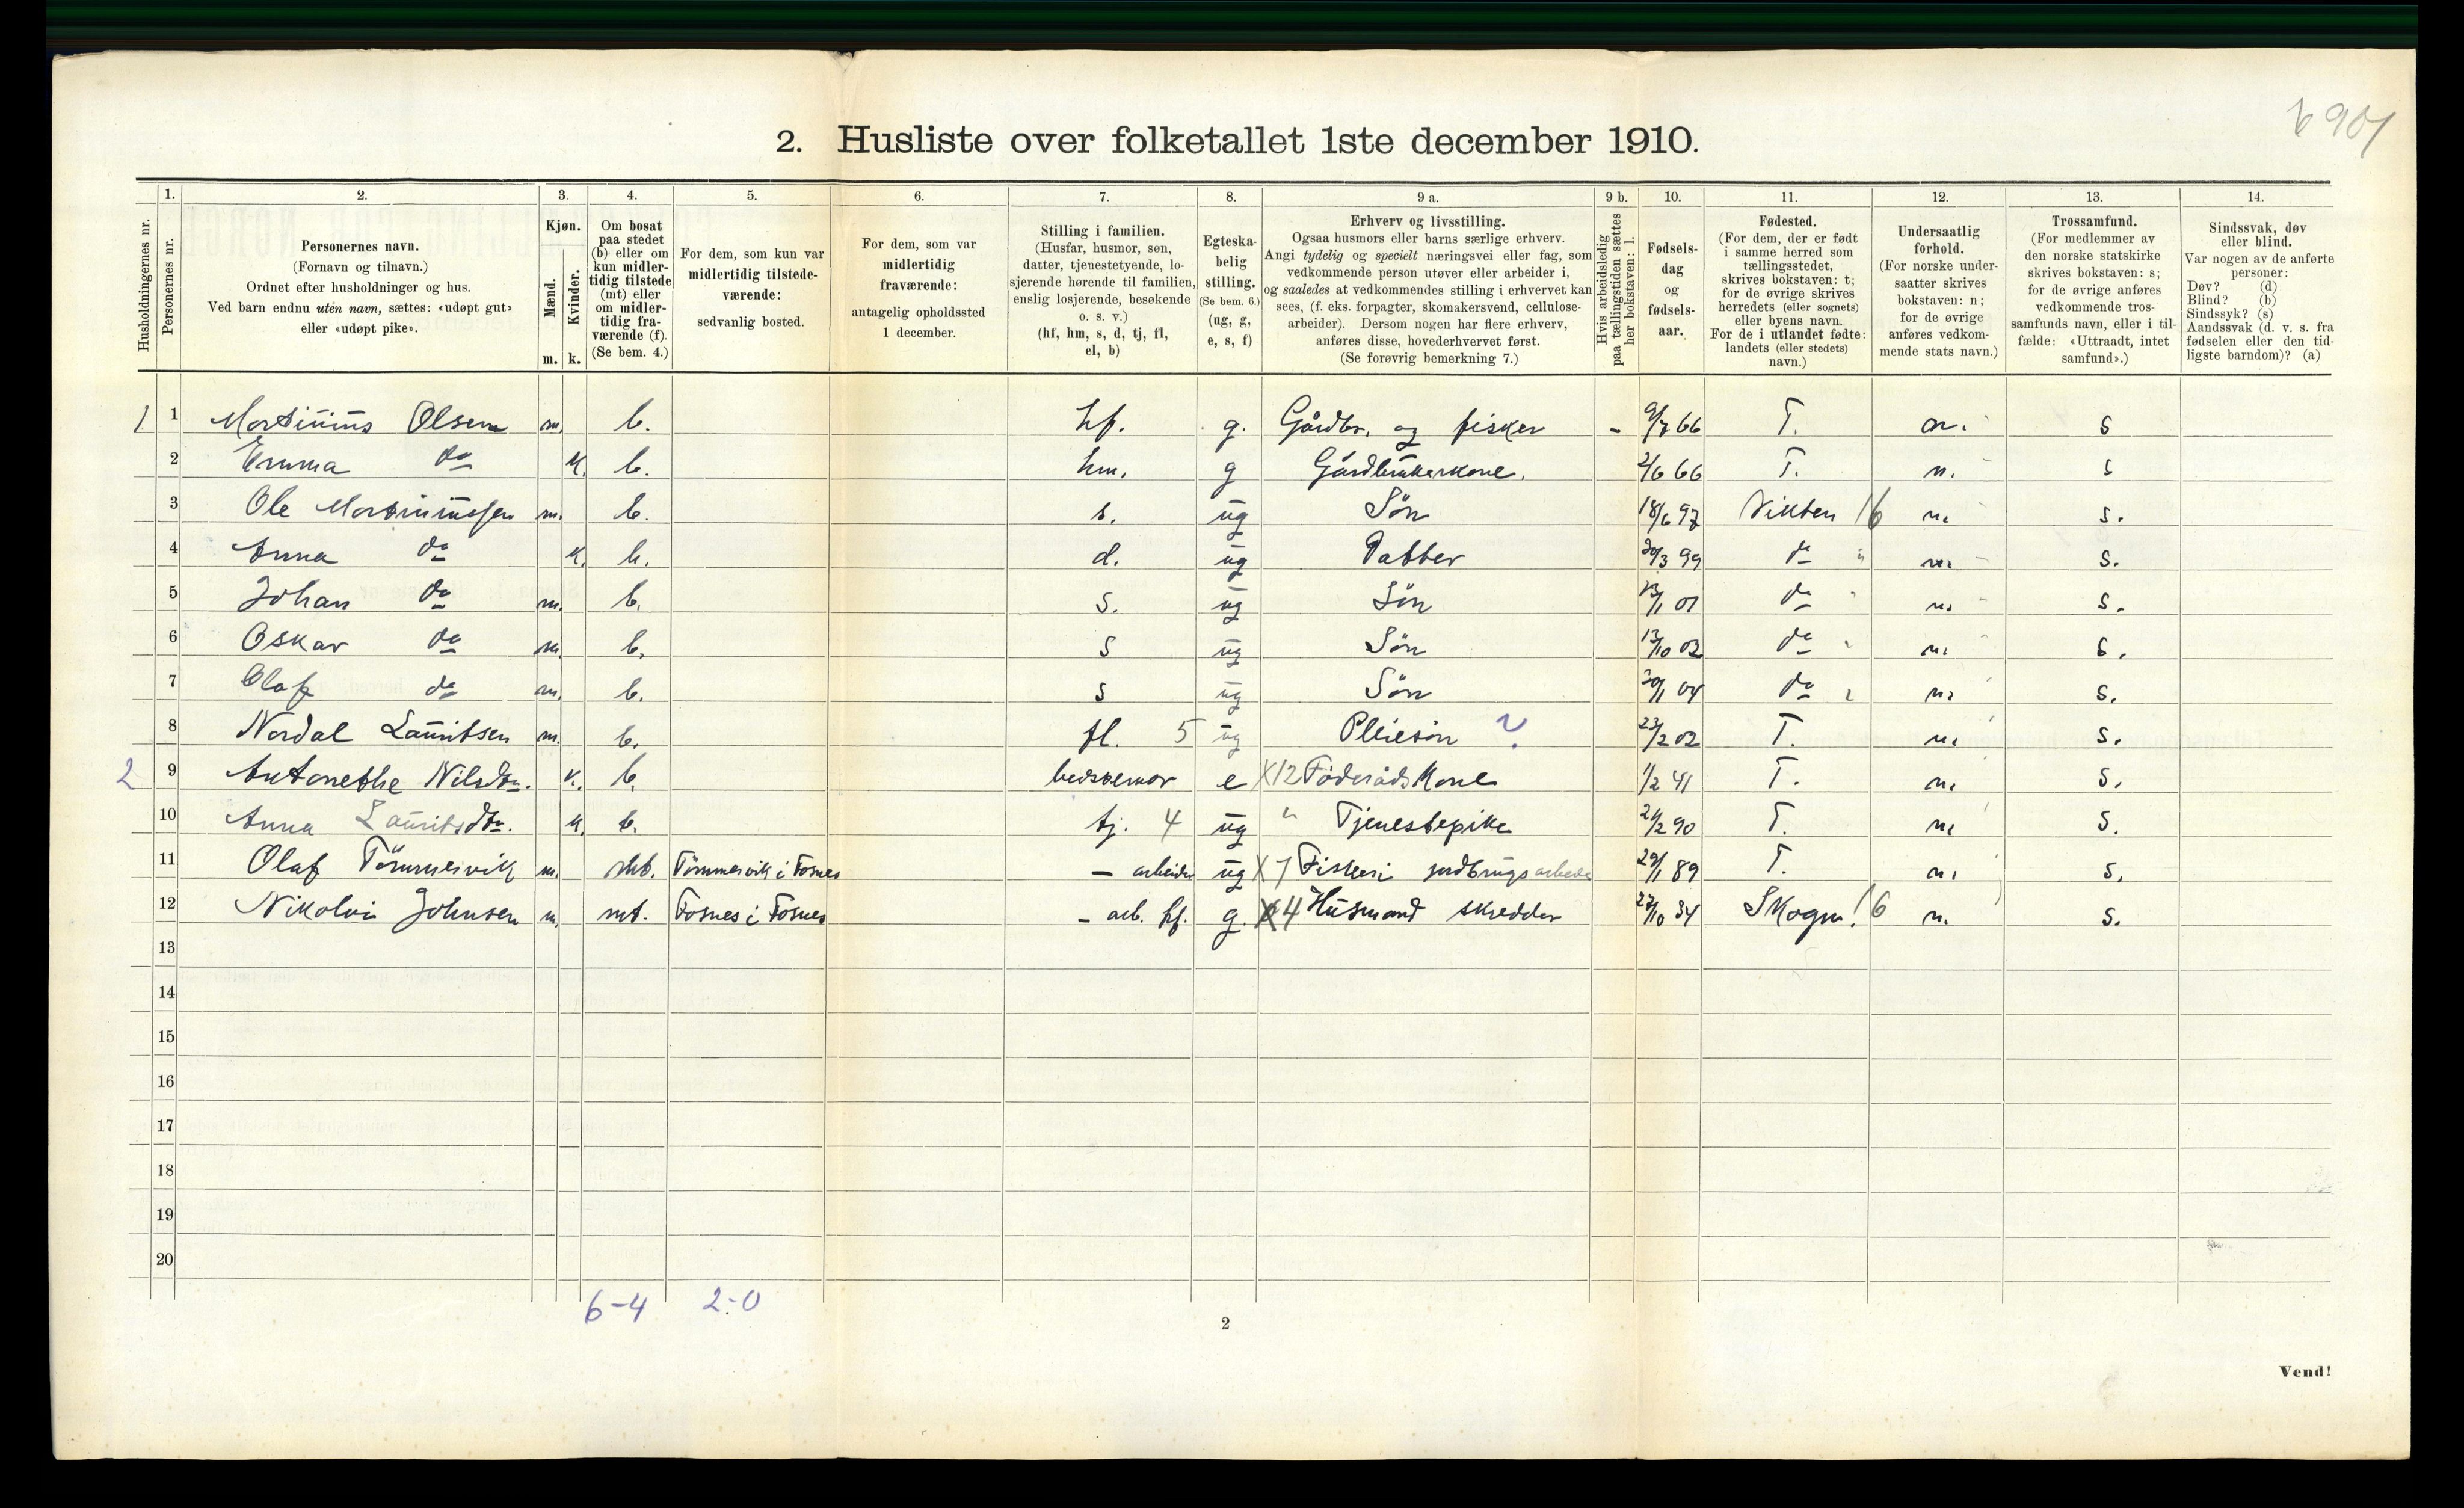 6901
2. Husliste over folketallet 1ste december 1910.
Husholdningernes nr.
1.
Personernes nr.
2.
Personernes navn.
(Fornavn og tilnavn.)
Ordnet efter husholdninger og hus.
Ved barn endnu uten navn, sættes: «udøpt gut»
eller «udøpt pike».
3.
Kjøn.
Mænd.
m.
Kvinder.
k.
4.
Om bosat
paa stedet
(b) eller om
kun midler-
tidig tilstede
(mt) eller
om midler-
tidig fra-
værende (f).
(Se bem. 4.)
5.
For dem, som kun var
midlertidig tilstede-
værende:
sedvanlig bosted.
6.
For dem, som var
midlertidig
fraværende:
antagelig opholdssted
1 december.
7.
Stilling i familien.
(Husfar, husmor, søn,
datter, tjenestetyende, lo-
sjerende hørende til familien,
enslig losjerende, besøkende
o. s. v.)
(hf, hm, s, d, tj, fl,
el, b)
8.
Egteska-
belig
stilling.
(Se bem. 6.)
(ug, g,
e, s, f)
9 a.
Erhverv og livsstilling.
Ogsaa husmors eller barns særlige erhverv.
Angi tydelig og specielt næringsvei eller fag, som
vedkommende person utøver eller arbeider i,
og saaledes at vedkommendes stilling i erhvervet kan
sees, (f. eks. forpagter, skomakersvend, cellulose-
arbeider). Dersom nogen har flere erhverv,
anføres disse, hovederhvervet først.
(Se forøvrig bemerkning 7.)
9 b.
Hvis arbeidsledig
paa tællingstiden sættes
her bokstaven: l.
10.
Fødsels-
dag
og
fødsels-
aar.
11.
Fødested.
(For dem, der er født
i samme herred som
tællingsstedet,
skrives bokstaven: t;
for de øvrige skrives
herredets (eller sognets)
eller byens navn.
For de i utlandet fødte:
landets (eller stedets)
navn.)
12.
Undersaatlig
forhold.
(For norske under-
saatter skrives
bokstaven: n;
for de øvrige
anføres vedkom-
mende stats navn.)
13.
Trossamfund.
(For medlemmer av
den norske statskirke
skrives bokstaven: s;
for de øvrige anføres
vedkommende tros-
samfunds navn, eller i til-
fælde: «Uttraadt, intet
samfund».)
14.
Sindssvak, døv
eller blind.
Var nogen av de anførte
personer:
Døv? (d)
Blind? (b)
Sindssyk? (s)
Aandssvak (d. v. s. fra
fødselen eller den tid-
ligste barndom)? (a)
1 1 Mortinius Olsen m. b. hf. g. Gårdbr. og fisker - 9/7 66 T. n. s
2 Emma do k. b. hm. g Gårdbrukerkone. 2/6 66 T. n. s
3 Ole Mortiniussen m. b. s. ug Søn 18/6 97 Vikten 16 n. s.
4 Anna do k. b. d. ug Datter 30/3 99 do " n. s.
5 Johan do m. b. s. ug Søn 01 do " n. s.
6 Oskar do m. b. s ug Søn 13/10 02 do " n. s.
7 Olaf do m. b. s ug Søn 04 do n. s.
8 Nordal Lauritsen m. b. fl. 5 ug Pleiesøn 23/2 02 T. n. s.
2 9 Antonethe Nilsdtr. k. b. bedstemor e X12 Føderådskone 1/2 41 T. n. s.
10 Anna Lauritsdtr. k. b. tj. 4 ug " Tjenestepike 2/2 90 T. n. s.
11 Olaf Tømmervik m. mt. Tømmervik i Fosnes - arbeider ug X7 Fiskeri jordbrugs arbeide 29/1 89 T. n. s.
12 Nikolai Johnsen m. mt. Fosnes i Fosnes - arb. hf. g. X4 Husmand skredder 27/10 34 Skogn! 6 n. s.
13
14
15
16
17
18
19
20
6-4 2-0
2
Vend!